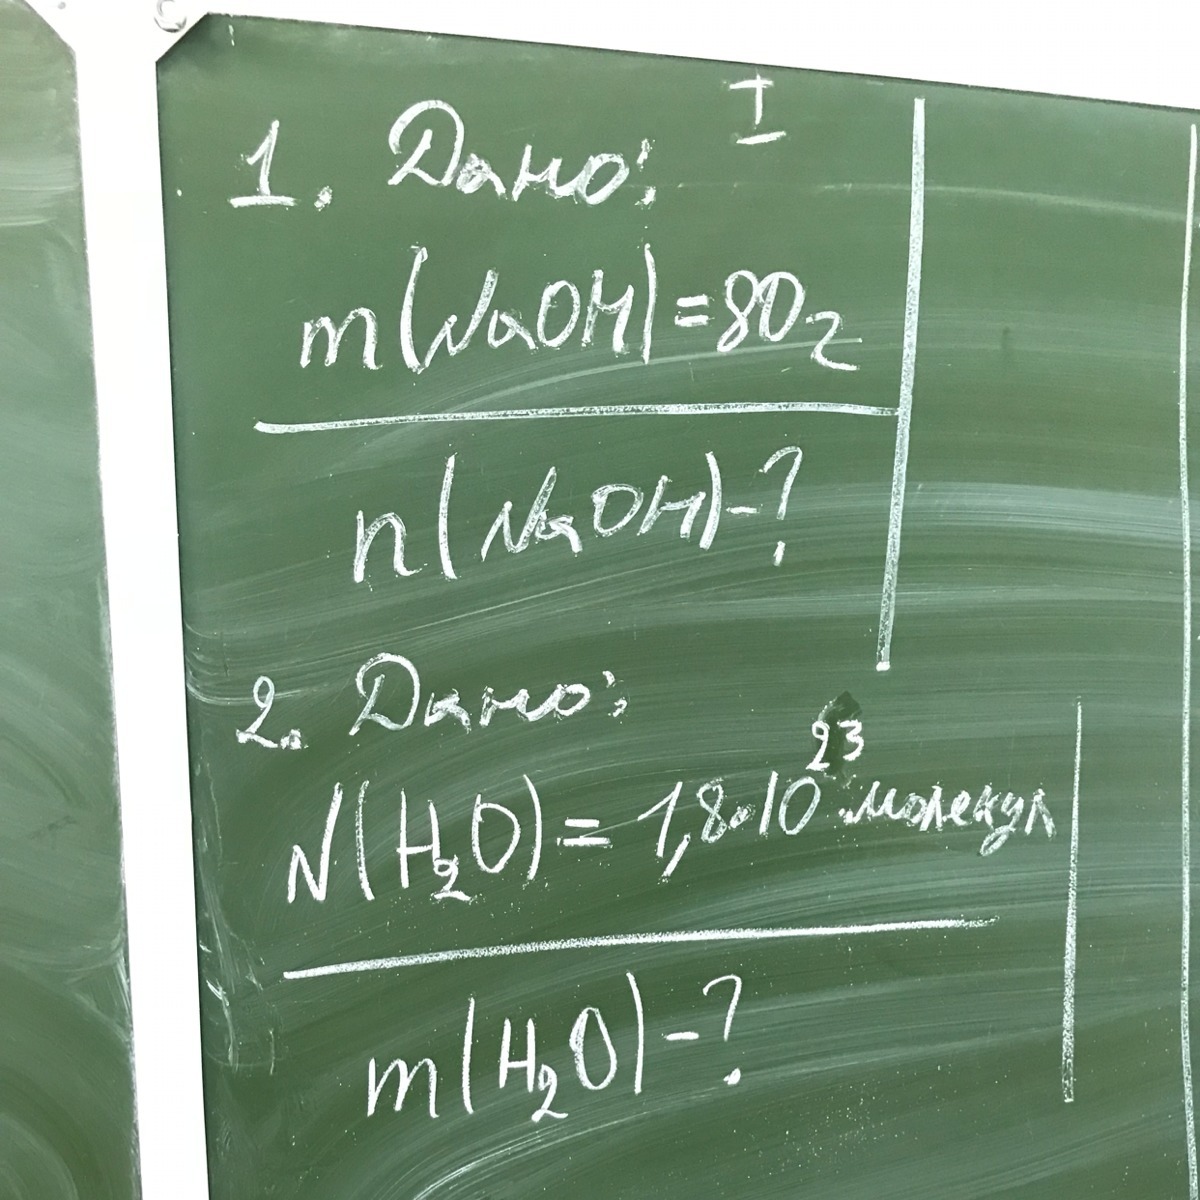 I
1. Дано:
m(NaOH)=80г
n(NaOH)-?
2. Дано:
N(H₂O)= 1,8·10²³ молекул
m(H₂O)-?